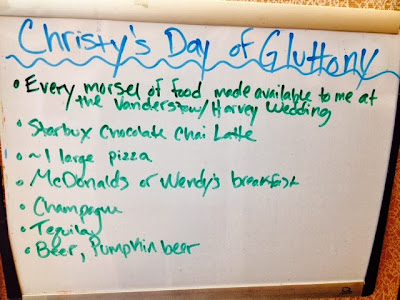 Christy's Day of Gluttony
• Every morsel of food made available to me at
the Vanderstow/Harvey Wedding
• Starbux Chocolate Chai Latte
• ~1 large pizza
• McDonalds or Wendy's breakfast
• Champagne
• Tequila
• Beer, Pumpkin beer